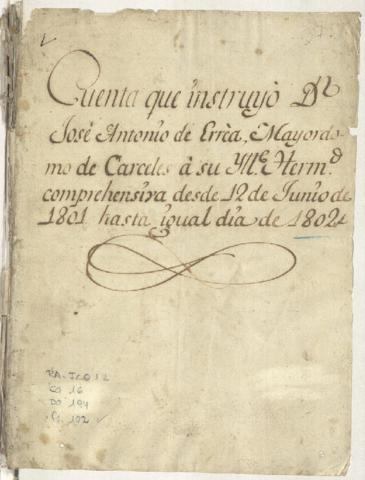 Cuenta que instruyó Dn
José Antonio de Errèa, Mayordo-
mo de Carceles à su Yltte Hermd
comprehensiva desde 12 de Junio de
1801 hasta igual dia de 1802
CO 16
DO 194
102